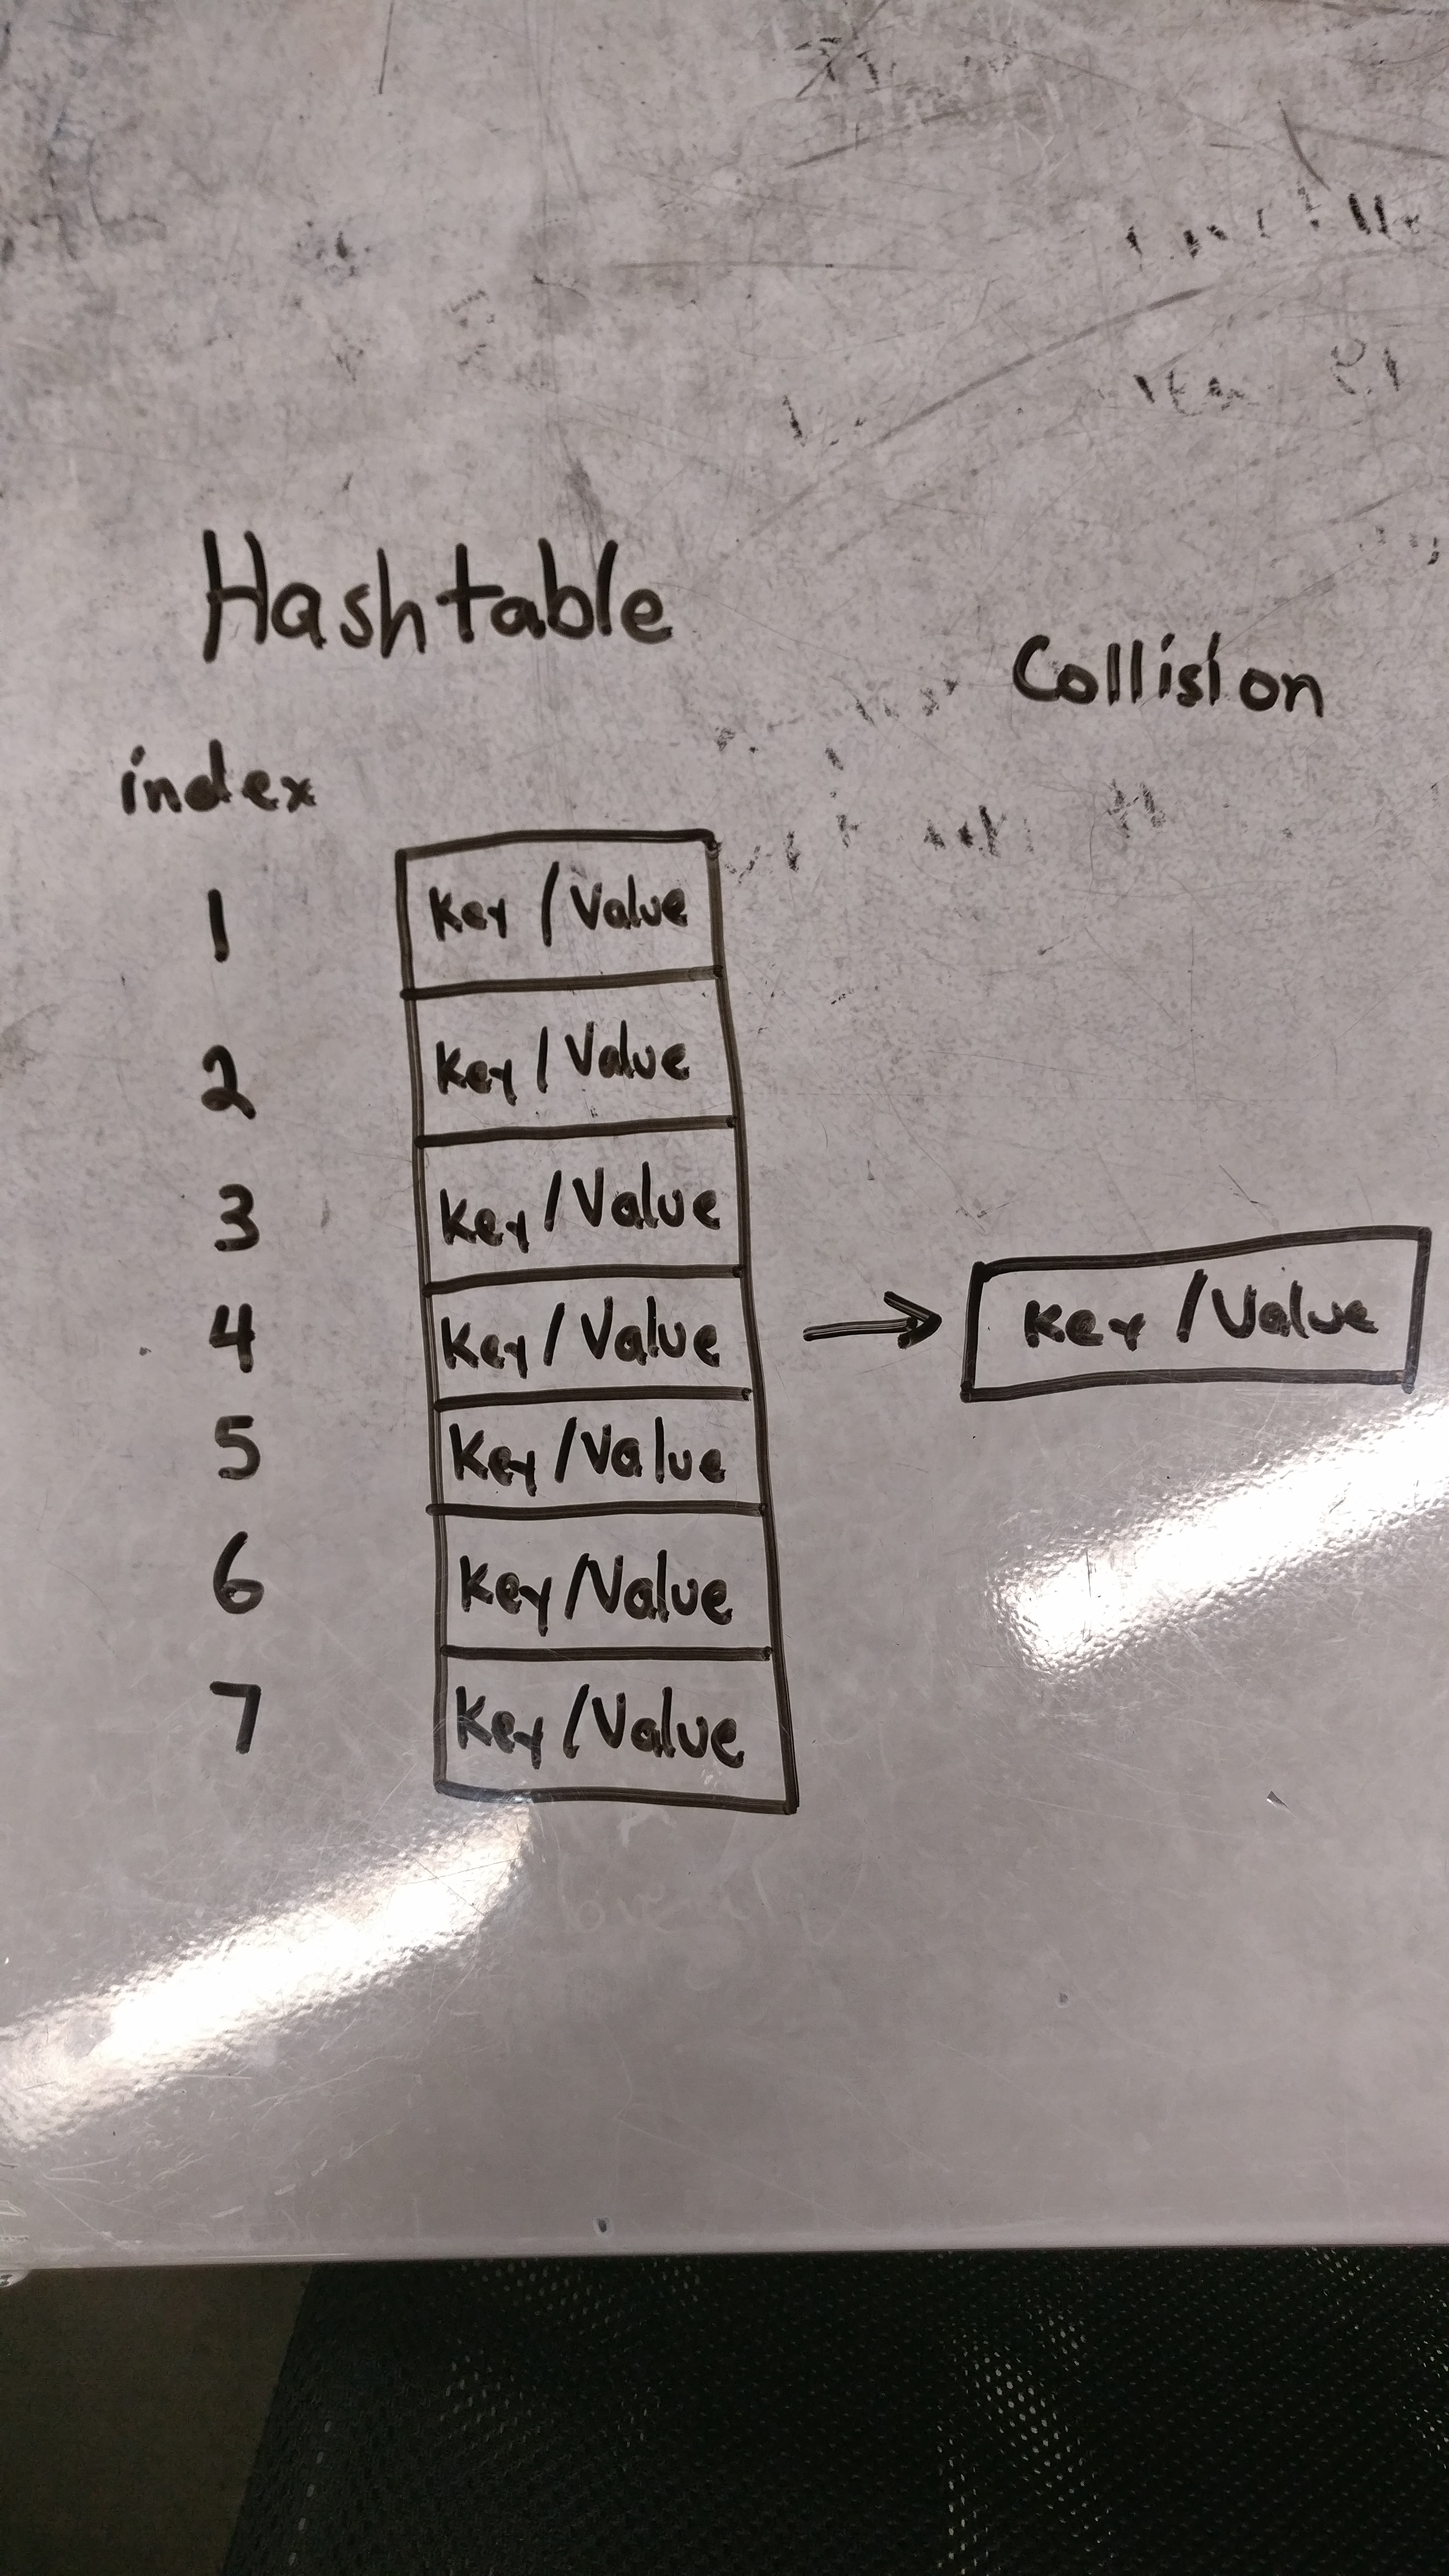 Hashtable
Collision
index
1 Key / Value
2 Key / Value
3 Key / Value
4 Key / Value → Key / Value
5 Key / Value
6 Key / Value
7 Key / Value